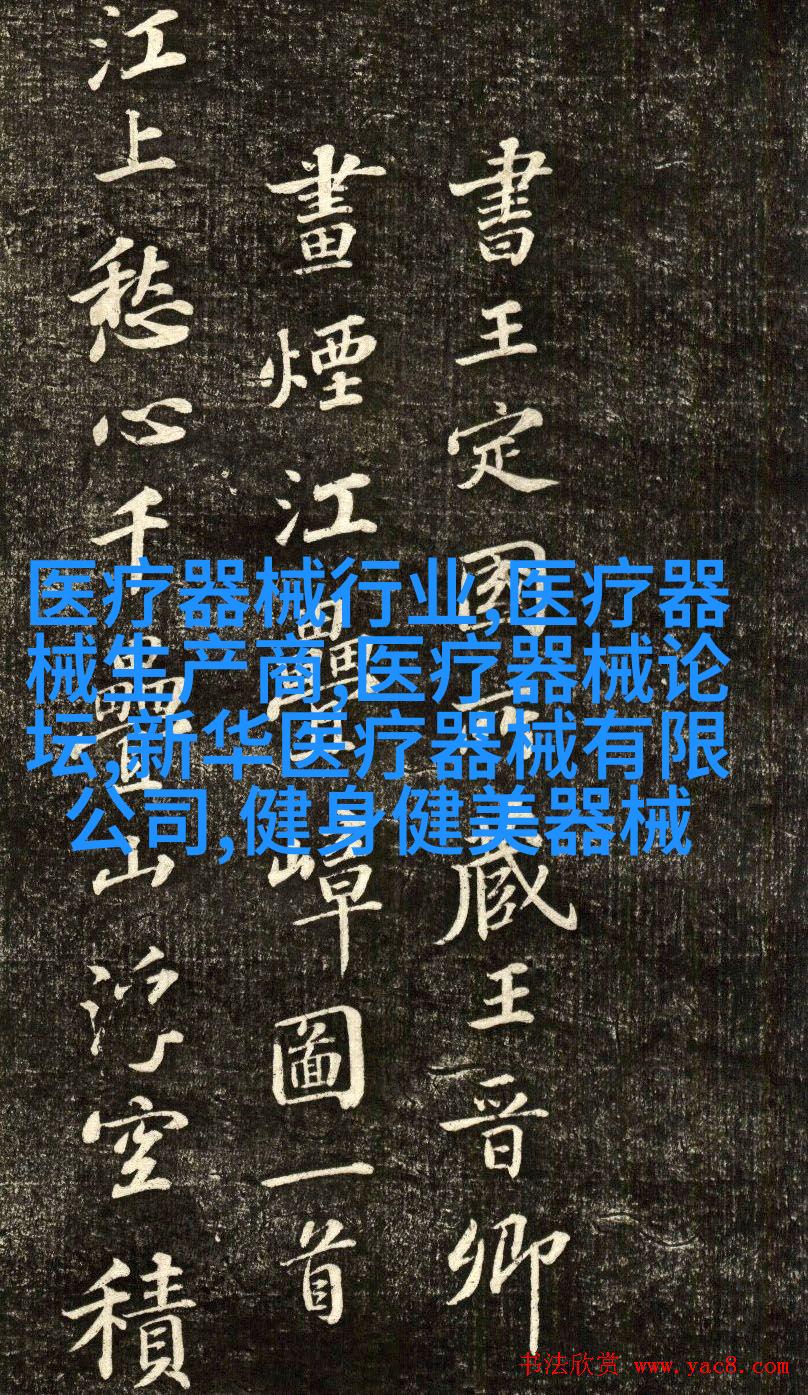 書王定國所藏王晉卿
畫煙江疊嶂圖一首
江上愁心千疊山浮空積
医疗器械行业,医疗器
械生产商,医疗器械论
坛,新华医疗器械有限
公司,健身健美器械
书法欣赏 www.yac8.com